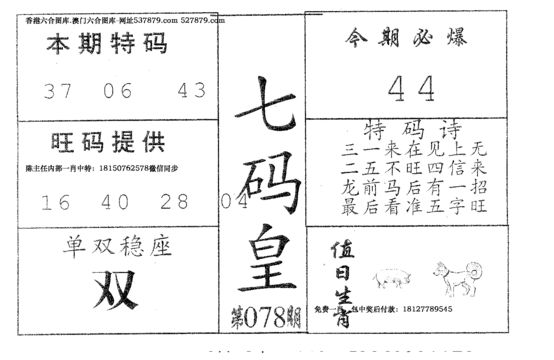 香港六合图库.澳门六合图库 网址537879.com 527879.com
本期特码
37 06 43
旺码提供
陈主任内部一肖中特：18150762578微信同步
16 40 28 04
单双稳座
双
七码皇
第078期
今期必爆
44
特码诗
三一来在见上无
二五不旺四信来
龙前马后有一招
最后看准五字旺
值日生肖
免费一 包中奖后付款：18127789545